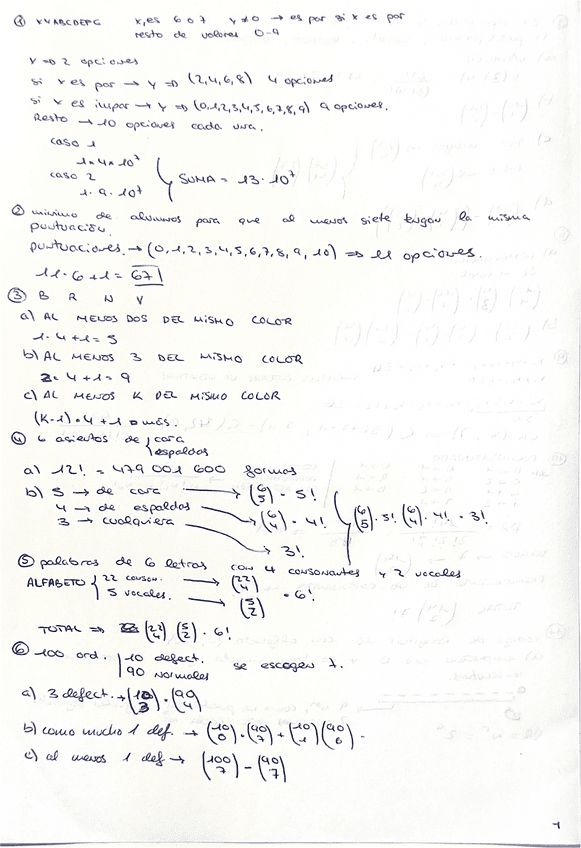 ① XYABCDEFG x, es 6 o 7 y≠0 → es par si x es par
resto de valores 0-9
x ⇒ 2 opciones
si x es par → y ⇒ (2,4,6,8) 4 opciones
si x es impar → y ⇒ (0,1,2,3,4,5,6,7,8,9) 9 opciones.
Resto → 10 opciones cada una.
caso 1
1·4×10⁷
caso 2
1·9·10⁷
SUMA = 13·10⁷
② minimo de alumnos para que al menos siete tengan la misma
puntuación.
puntuaciones → (0,1,2,3,4,5,6,7,8,9,10) ⇒ 11 opciones.
11·6+1 = 67
③ B R N V
a) AL MENOS DOS DEL MISMO COLOR
1·4+1=5
b) AL MENOS 3 DEL MISMO COLOR
2·4+1=9
c) AL MENOS K DEL MISMO COLOR
(K-1)·4+1 o más.
④ 6 asientos de { cara
espaldas
a) 12! = 479 001 600 formas
b) 5 → de cara → (6 5)·5!
4 → de espaldas → (6 4)·4!
3 → cualquiera → 3!
(6 5)·5! (6 4)·4!·3!
⑤ palabras de 6 letras con 4 consonantes y 2 vocales
ALFABETO { 22 conson. → (22 4)
5 vocales. → (5 2) · 6!
TOTAL ⇒ (22 4)(5 2)·6!
⑥ 100 ord. | 10 defect. se escogen 7.
90 normales
a) 3 defect. → (10 3)·(90 4)
b) como mucho 1 def. → (10 0)·(90 7)+(10 1)(90 6)·
c) al menos 1 def → (100 7)-(90 7)
1